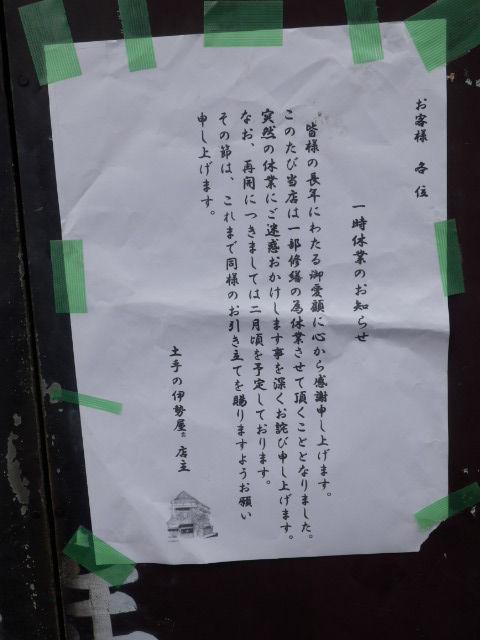 お客様　各位
一時休業のお知らせ
皆様の長年にわたる御愛顧に心から感謝申し上げます。
このたび当店は一部修繕の為休業させて頂くこととなりました。
突然の休業にご迷惑おかけします事を深くお詫び申し上げます。
なお、再開につきましては二月頃を予定しております。
その節は、これまで同様のお引き立てを賜りますようお願い
申し上げます。
土手の伊勢屋　店主